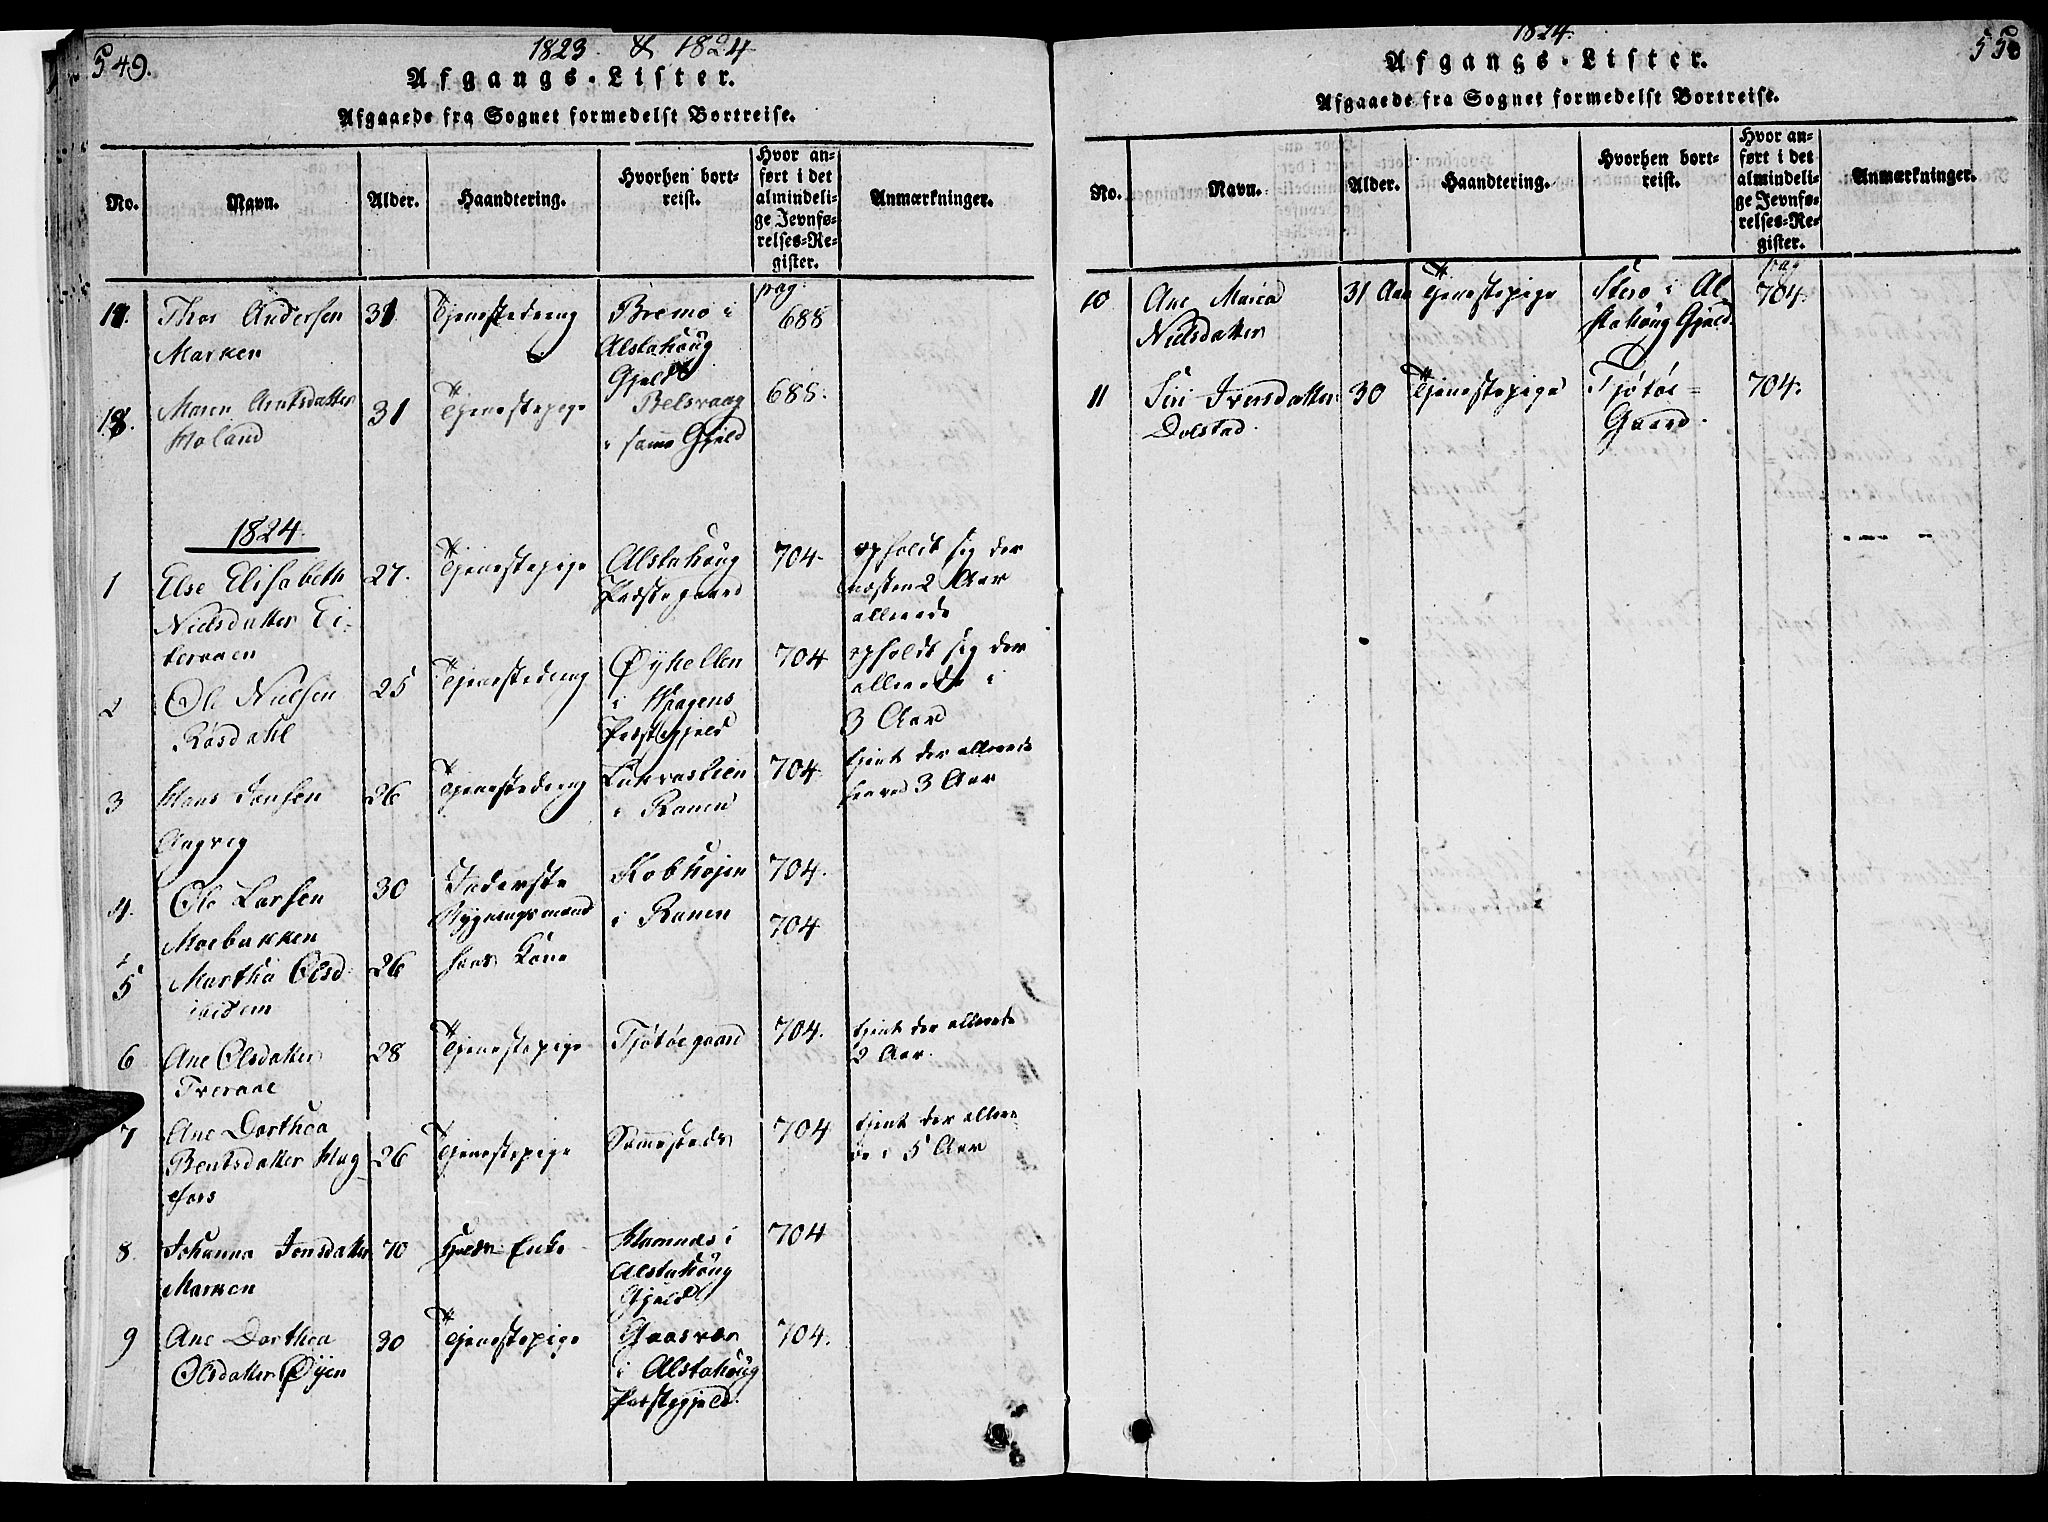 549.
1823 & 1824
Afgangs-Lister.
Afgaaede fra Sognet formedelst Bortreise.
No. Navn. Alder. Haandtering. Hvorhen bortreist. Hvor anført i det almindelige Jevnførelses-Register. Anmærkninger.
pag.
17. Thor Andersen 31 Tjenestedreng Bremø i 688
Marken Alstahoug
Gjeld
18. Maren Arntsdatter 31 Tjenestepige Belsvaag 688.
Moland i samme Gjeld
1824
1 Else Elisabeth 27. Tjenestepige Alstahoug 704. opholdt sig der
Nielsdatter Ei- Præstegaard næsten 2 Aar
teraaen allerede
2 Ole Nielsen 25 Tjenestedreng Øyhellen 704 opholdt sig der
Røsdahl i Vaagens allerede i
Præstegjeld 3 Aar
3 Hans Jensen 26 Tjenestedreng i Ranen 704 tjent der allerede
Aagvig 3 Aar
4. Ole Larsen 30 Inderste 704.
Moebakken Bygningsmand i Ranen
5 Martha Olsd. 26 hans Kone 704
ibidem
6 Ane Olsdatter 28 Tjenestepige Tjøtøegaard 704. tjent der allerede
Tveraae 2 Aar.
7 Ane Dorthea
Bentsdatter Hag- 26 Tjenestepige Sammesteds 704 tjent der allere-
fors de i 5 Aar
8. Johanna Jensdatter 70 Enke i 704
Marken Alstahoug
Gjeld
9 Ane Dorthea 30 Tjenestepige Gaasvær 704.
Olsdatter Øyen i Alstahoug
Præstegjeld.
550
1824.
Afgangs-Lister.
Afgaaede fra Sognet formedelst Bortreise.
No. Navn. Alder. Haandtering. Hvorhen bortreist. Hvor anført i det almindelige Jevnførelses-Register. Anmærkninger.
pag
10 Ane Maria 31 Aar Tjenestepige Sterø i Al 704.
Nielsdatter stahoug Gjeld.
11 Siri Iversdatter 30 Tjenestepige Tjøtøe- 704.
Dolstad. Gaard.